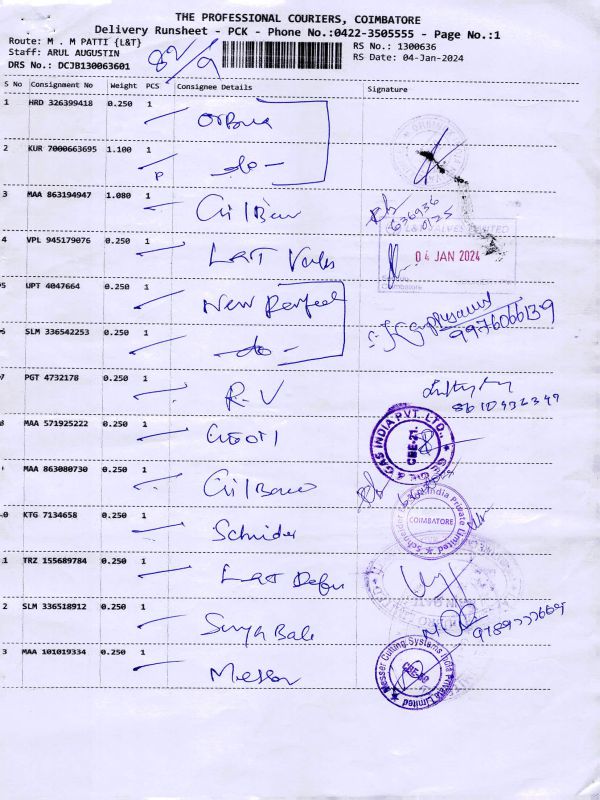 THE PROFESSIONAL COURIERS, COIMBATORE
Delivery Runsheet - PCK - Phone No.:0422-3505555 - Page No.:1
Route: M . M PATTI {L&T}
Staff: ARUL AUGUSTIN
DRS No.: DCJB130063601
82/9
RS No.: 1300636
RS Date: 04-Jan-2024
S No Consignment No Weight PCS Consignee Details Signature
1 HRD 326399418 0.250 1
2 KUR 7000663695 1.100 1 - do -
P
3 MAA 863194947 1.080 1
636936
4 VPL 945179076 0.250 1 L&T Valves
04 JAN 2024
Coimbatore
5 UPT 4047664 0.250 1 New Perfect
9976066139
6 SLM 336542253 0.250 1 - do -
7 PGT 4732178 0.250 1 R-V
8610932349
8 MAA 571925222 0.250 1
& GAS INDIA PVT. LTD.,
CBE-21.
MAA 863080730 0.250 1
0 KTG 7134658 0.250 1 Schnider
Schneider India Private Limited
COIMBATORE
1 TRZ 155689784 0.250 1 L&T Defen
2 SLM 336518912 0.250 1 Surya Bala
3 MAA 101019334 0.250 1 Messer
Messer Cutting Systems India Private Limited